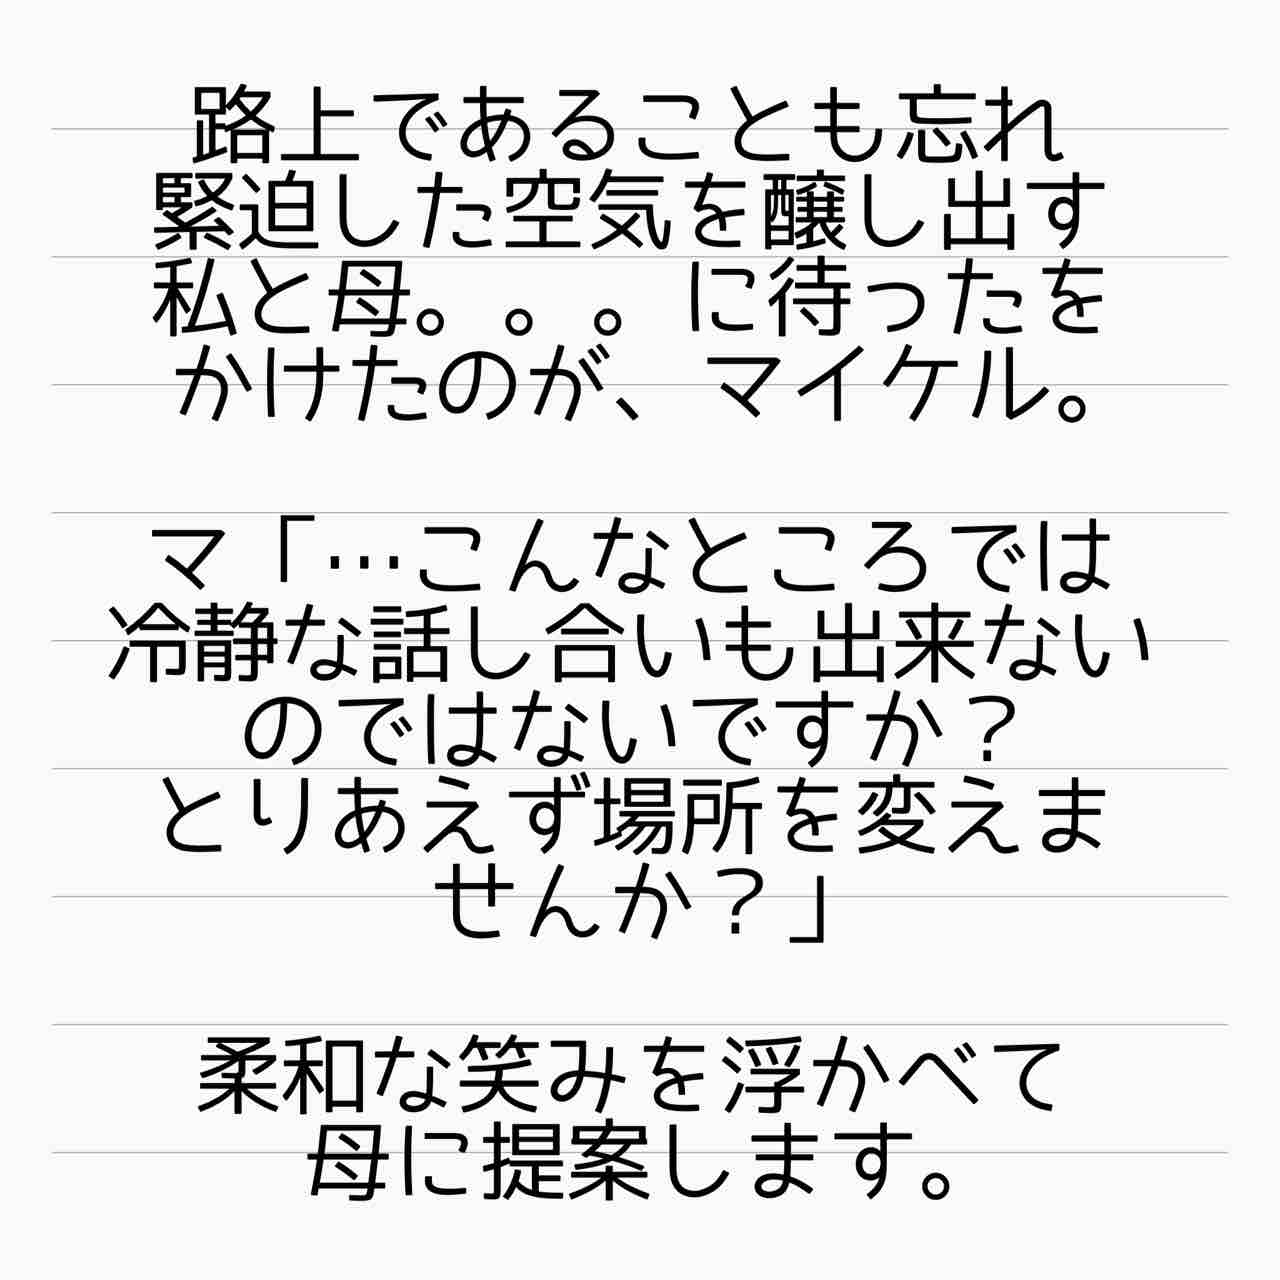 路上であることも忘れ
緊迫した空気を醸し出す
私と母。。。に待ったを
かけたのが、マイケル。
マ「…こんなところでは
冷静な話し合いも出来ない
のではないですか？
とりあえず場所を変えま
せんか？」
柔和な笑みを浮かべて
母に提案します。